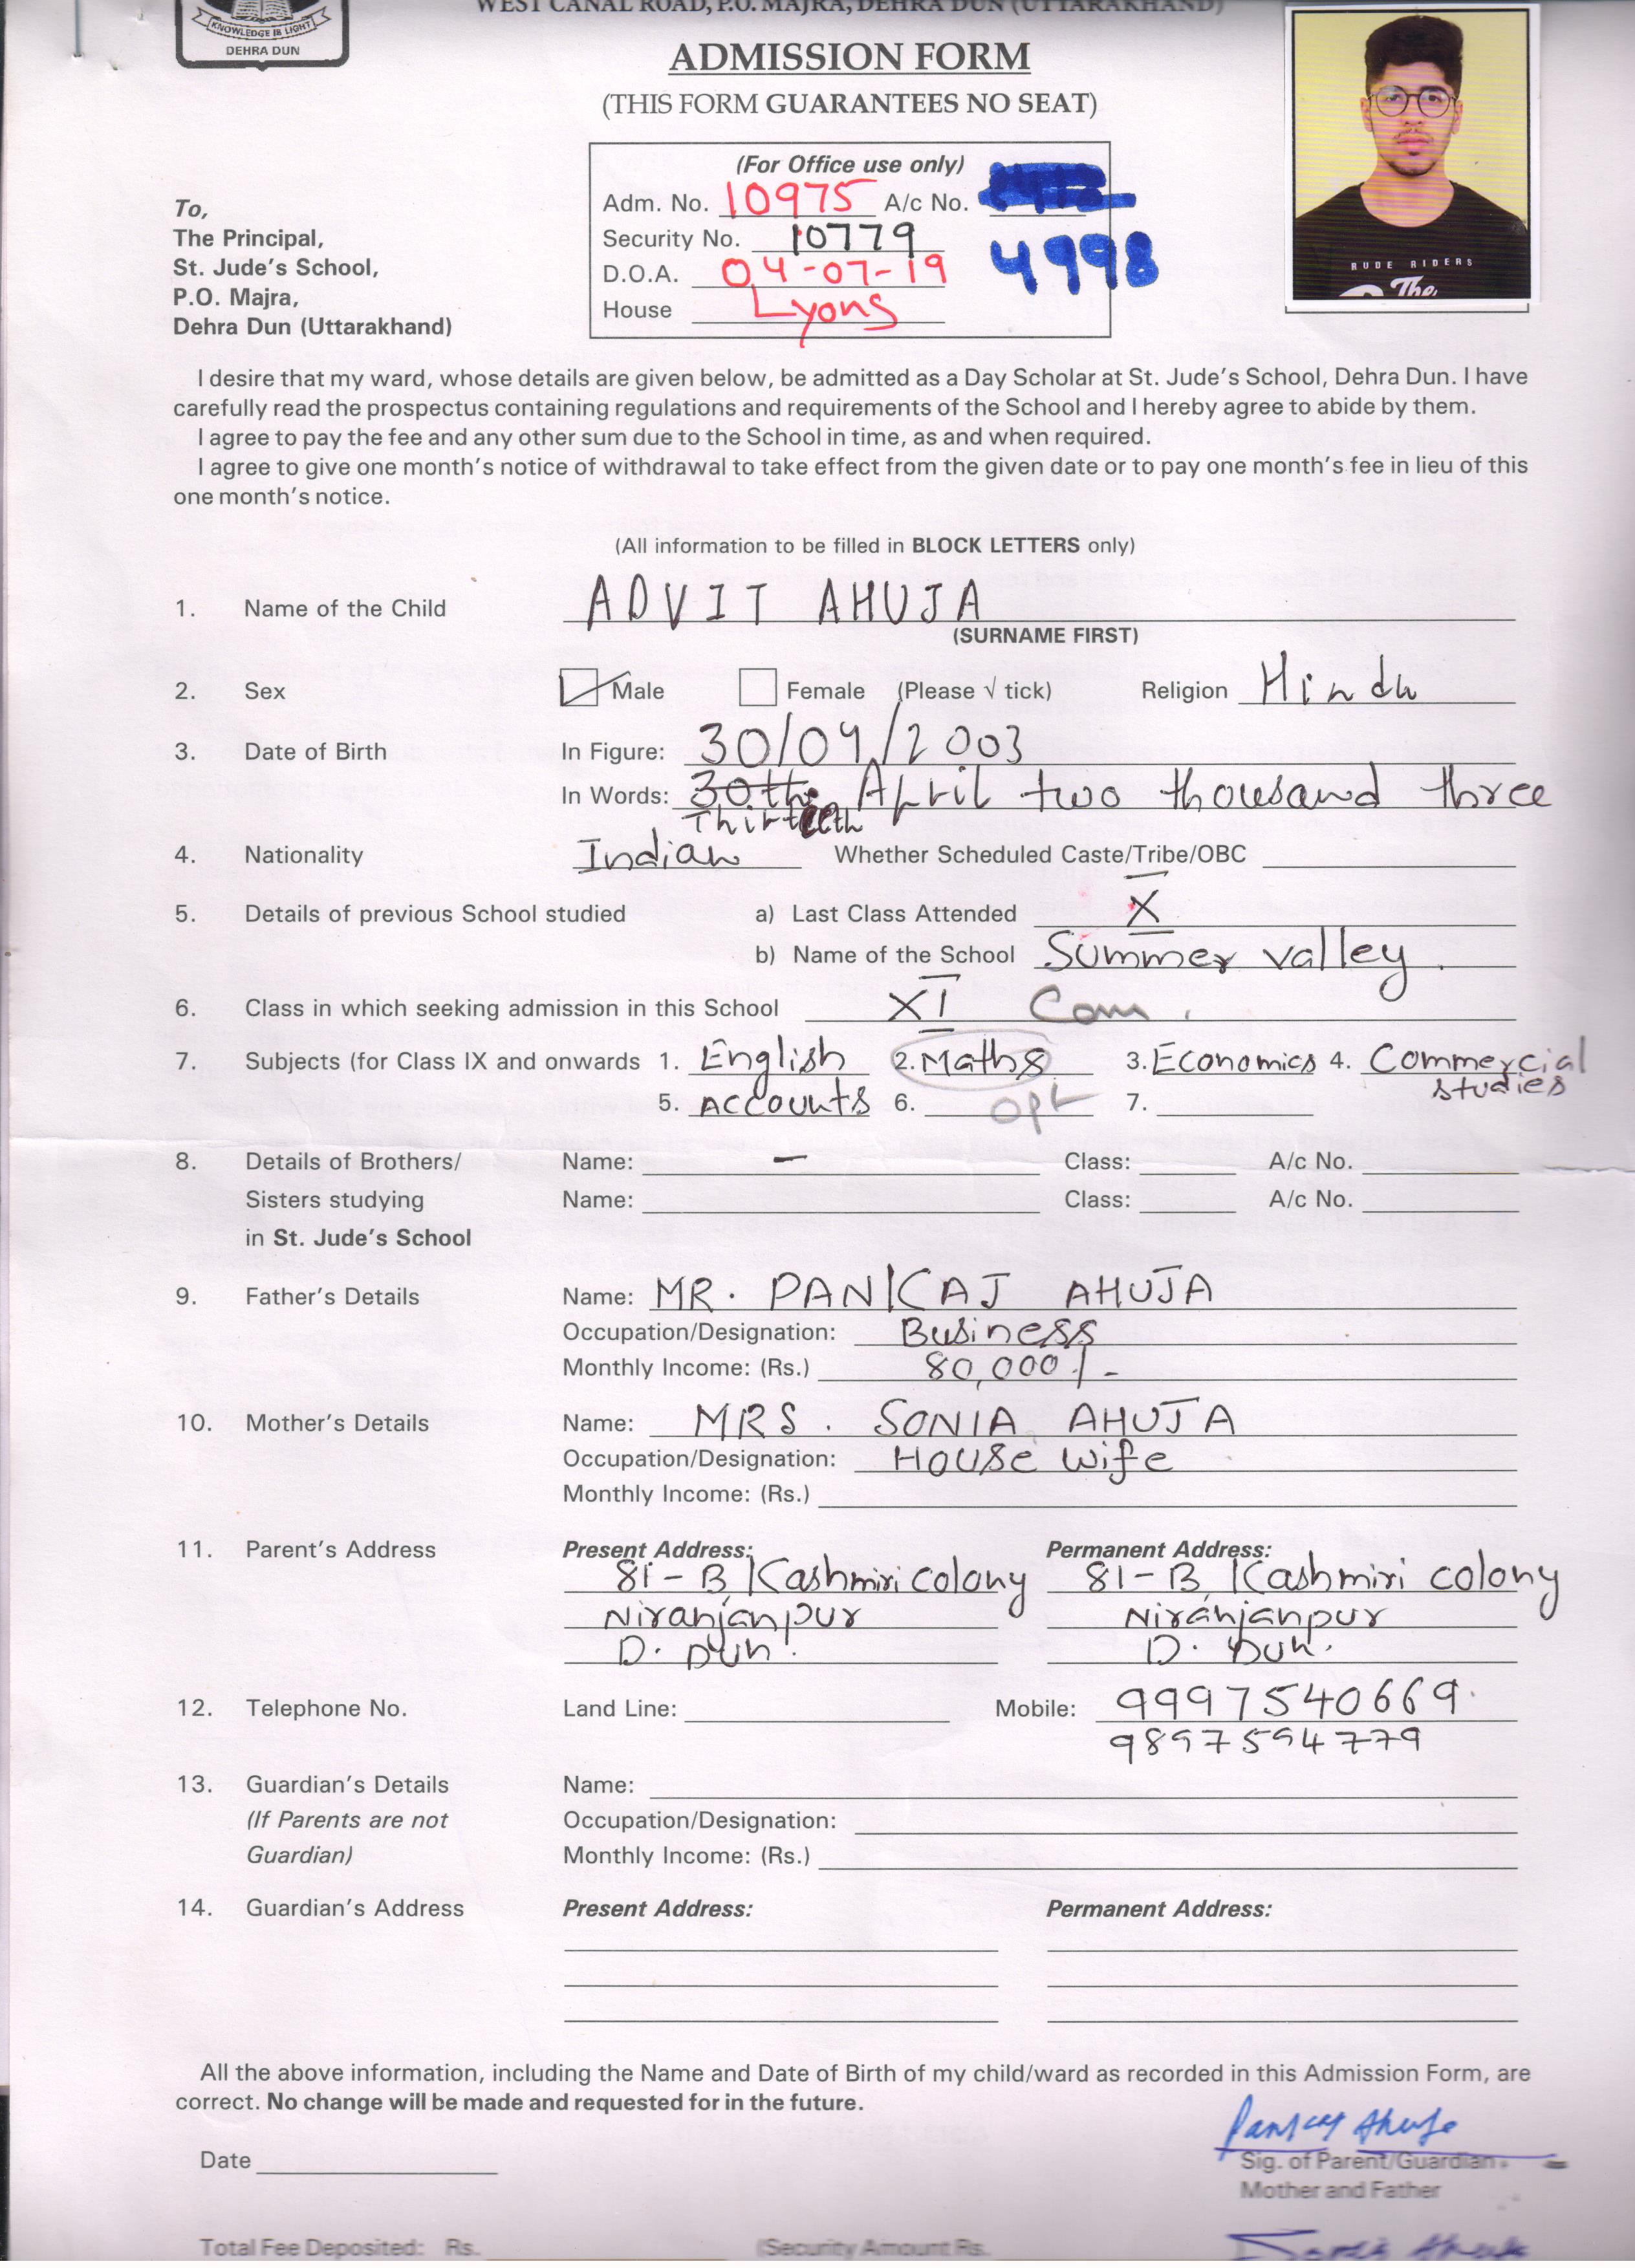 WEST CANAL ROAD, P.O. MAJRA, DEHRA DUN (UTTARAKHAND)
KNOWLEDGE IS LIGHT
DEHRA DUN
ADMISSION FORM
(THIS FORM GUARANTEES NO SEAT)
(For Office use only)
Adm. No. 10975 A/c No.
Security No. 10779 4998
D.O.A. 04-07-19
House Lyons
To,
The Principal,
St. Jude's School,
P.O. Majra,
Dehra Dun (Uttarakhand)
RUDE RIDERS
The
I desire that my ward, whose details are given below, be admitted as a Day Scholar at St. Jude's School, Dehra Dun. I have
carefully read the prospectus containing regulations and requirements of the School and I hereby agree to abide by them.
I agree to pay the fee and any other sum due to the School in time, as and when required.
I agree to give one month's notice of withdrawal to take effect from the given date or to pay one month's fee in lieu of this
one month's notice.
(All information to be filled in BLOCK LETTERS only)
1. Name of the Child ADVIT AHUJA
(SURNAME FIRST)
2. Sex Male Female (Please √ tick) Religion Hindu
3. Date of Birth In Figure: 30/04/2003
In Words: 30th April two thousand three
Thirtieth
4. Nationality Indian Whether Scheduled Caste/Tribe/OBC
5. Details of previous School studied a) Last Class Attended X
b) Name of the School Summer valley.
6. Class in which seeking admission in this School XI Com.
7. Subjects (for Class IX and onwards 1. English 2. Maths 3. Economics 4. Commercial
studies
5. Accounts 6. opt 7.
8. Details of Brothers/ Name: - Class: A/c No.
Sisters studying Name: Class: A/c No.
in St. Jude's School
9. Father's Details Name: MR. PANKAJ AHUJA
Occupation/Designation: Business
Monthly Income: (Rs.) 80,000/-
10. Mother's Details Name: MRS. SONIA AHUJA
Occupation/Designation: House wife
Monthly Income: (Rs.)
11. Parent's Address Present Address: Permanent Address:
81-B Kashmiri colony 81-B Kashmiri colony
Niranjanpur Niranjanpur
D. Dun. D. Dun.
12. Telephone No. Land Line: Mobile: 9997540669.
9897594779
13. Guardian's Details Name:
(If Parents are not Occupation/Designation:
Guardian) Monthly Income: (Rs.)
14. Guardian's Address Present Address: Permanent Address:
All the above information, including the Name and Date of Birth of my child/ward as recorded in this Admission Form, are
correct. No change will be made and requested for in the future.
Pankaj Ahuja
Date Sig. of Parent/Guardian
Mother and Father
Total Fee Deposited: Rs. (Security Amount Rs.